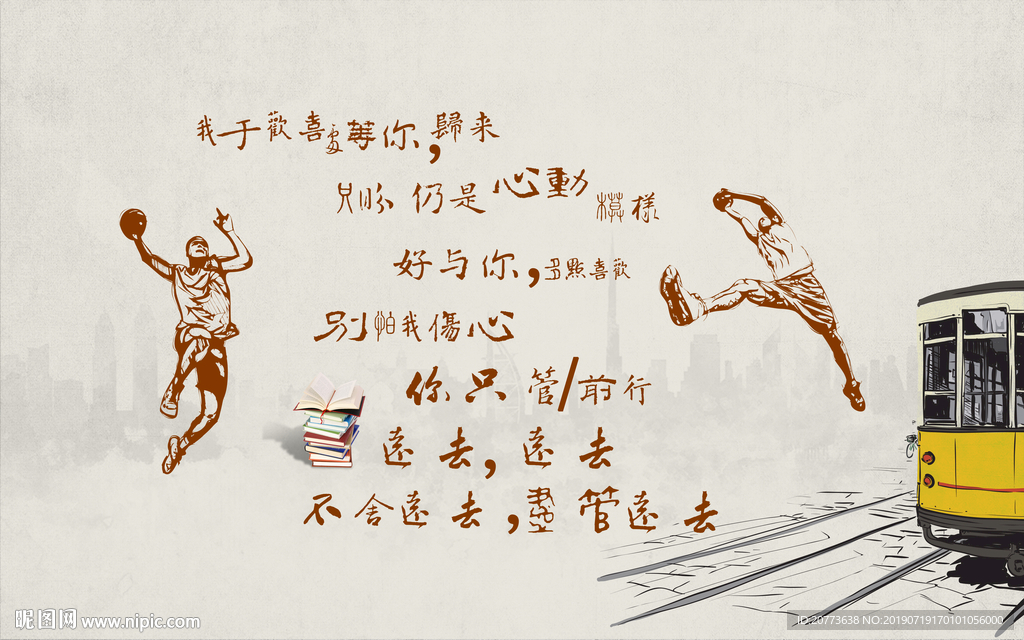 我于歡喜處等你,歸来
別吩 仍是心動模樣
好与你,多點喜歡
別怕我傷心
你只管/前行
遠去,遠去
不舍遠去,盡管遠去
昵图网 www.nipic.com
ID:20773638 NO:20190719170101056000